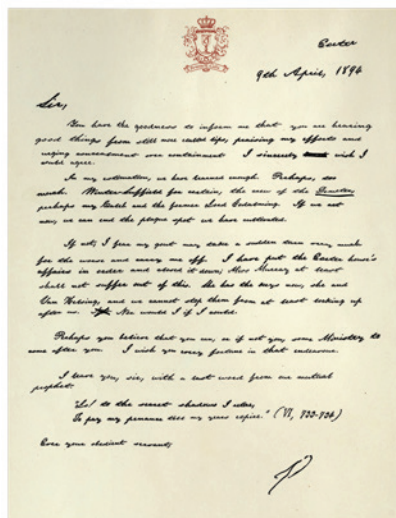 Exeter
9th April, 1894
Sir,
You have the goodness to inform me that you are hearing
good things from still more exalted lips, praising my efforts and
urging announcement over containment I sincerely wish I
could agree.
In my estimation, we have learned enough. Perhaps, too
much. for certain, the crew of the Demeter,
perhaps my and the former Lord Godalming. If we act
now, we can end the plague spot we have cultivated.
If not, I fear my gout may take a sudden turn over, much
for the worse and carry me off. I have put the Exeter house's
affairs in order and closed it down; Miss Murray at least
shall not suffer out of this. She has the keys now, she and
Van Helsing, and we cannot stop them from at least looking up
after us. Nor would I if I could.
Perhaps you believe that you can, or if not you, some Ministry to
come after you. I wish you every fortune in that endeavor.
I leave you, sir, with a last word from our mutual
prophet:
"Lo! to the secret shadows I retire,
To pay my penance till my years expire." (VI, 733-734)
Ever your obedient servant,